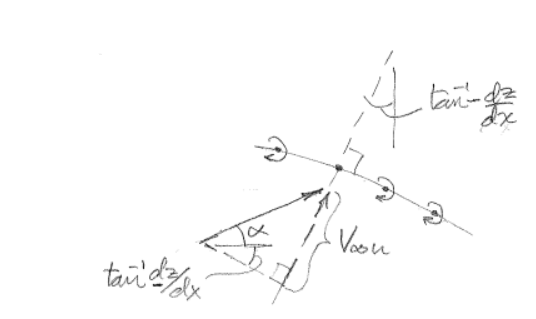 tan⁻¹ -dz/dx
α
V∞n
tan⁻¹ -dz/dx